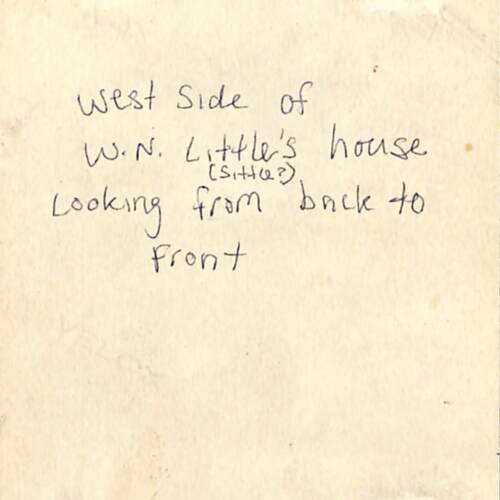 West Side of
W.N. Little's house
(Sittle?)
Looking from back to
Front